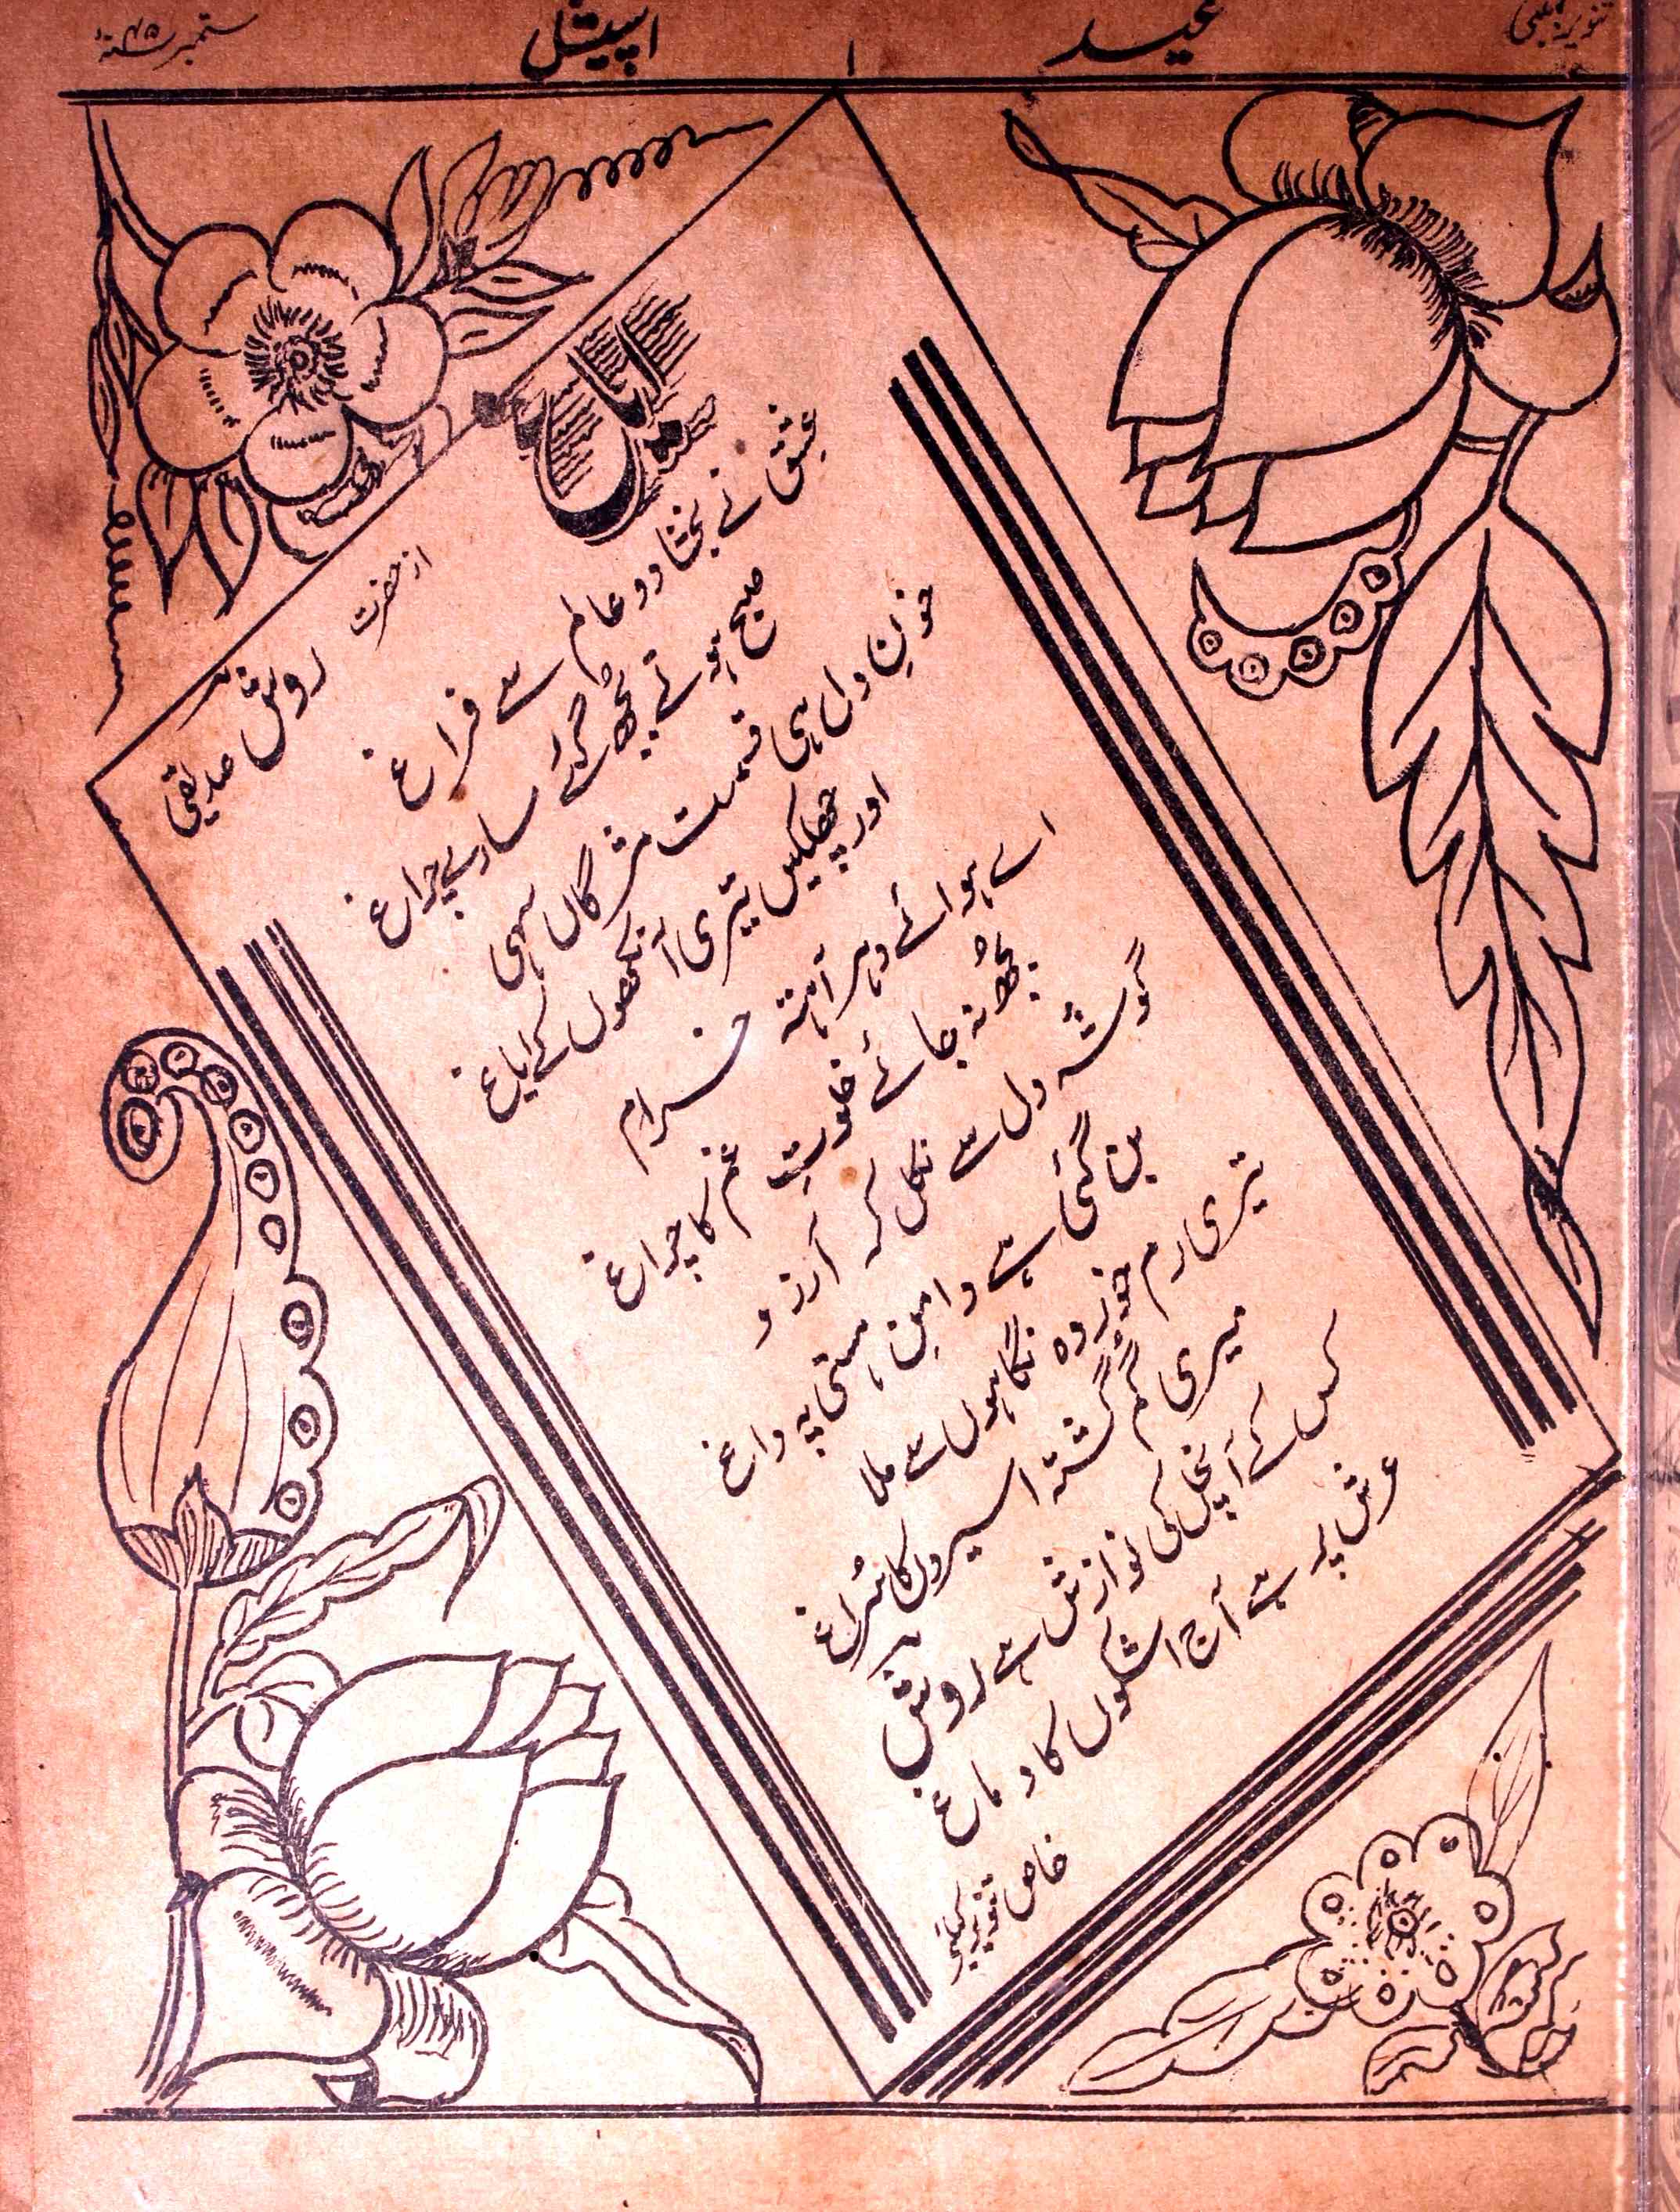 تنویر بمبئی
عید
۱
اسپیشل
ستمبر ۴۵ سنہ
از حضرت
روش صدیقی
عشق نے بخشا دو عالم سے فراغ
صبح ہوتے بجھ گئے سارے چراغ
خونِ دل ہی قسمت مژگاں سہی
اور چھلکیں تیری آنکھوں کے ایاغ
اے ہوائے دہر آہستہ خرام
بجھ نہ جائے خلوتِ غم کا چراغ
گوشۂ دل سے نکل کر آرزو
بن گئی ہے دامنِ ہستی پہ داغ
تیری رم خوردہ نگاہوں سے ملا
میری گم گشتہ اسیروں کا سُراغ
کس کے آنچل کی نوازش ہے روش
عرش پر ہے آج اشکوں کا دماغ
خاص تنویر کیلئے